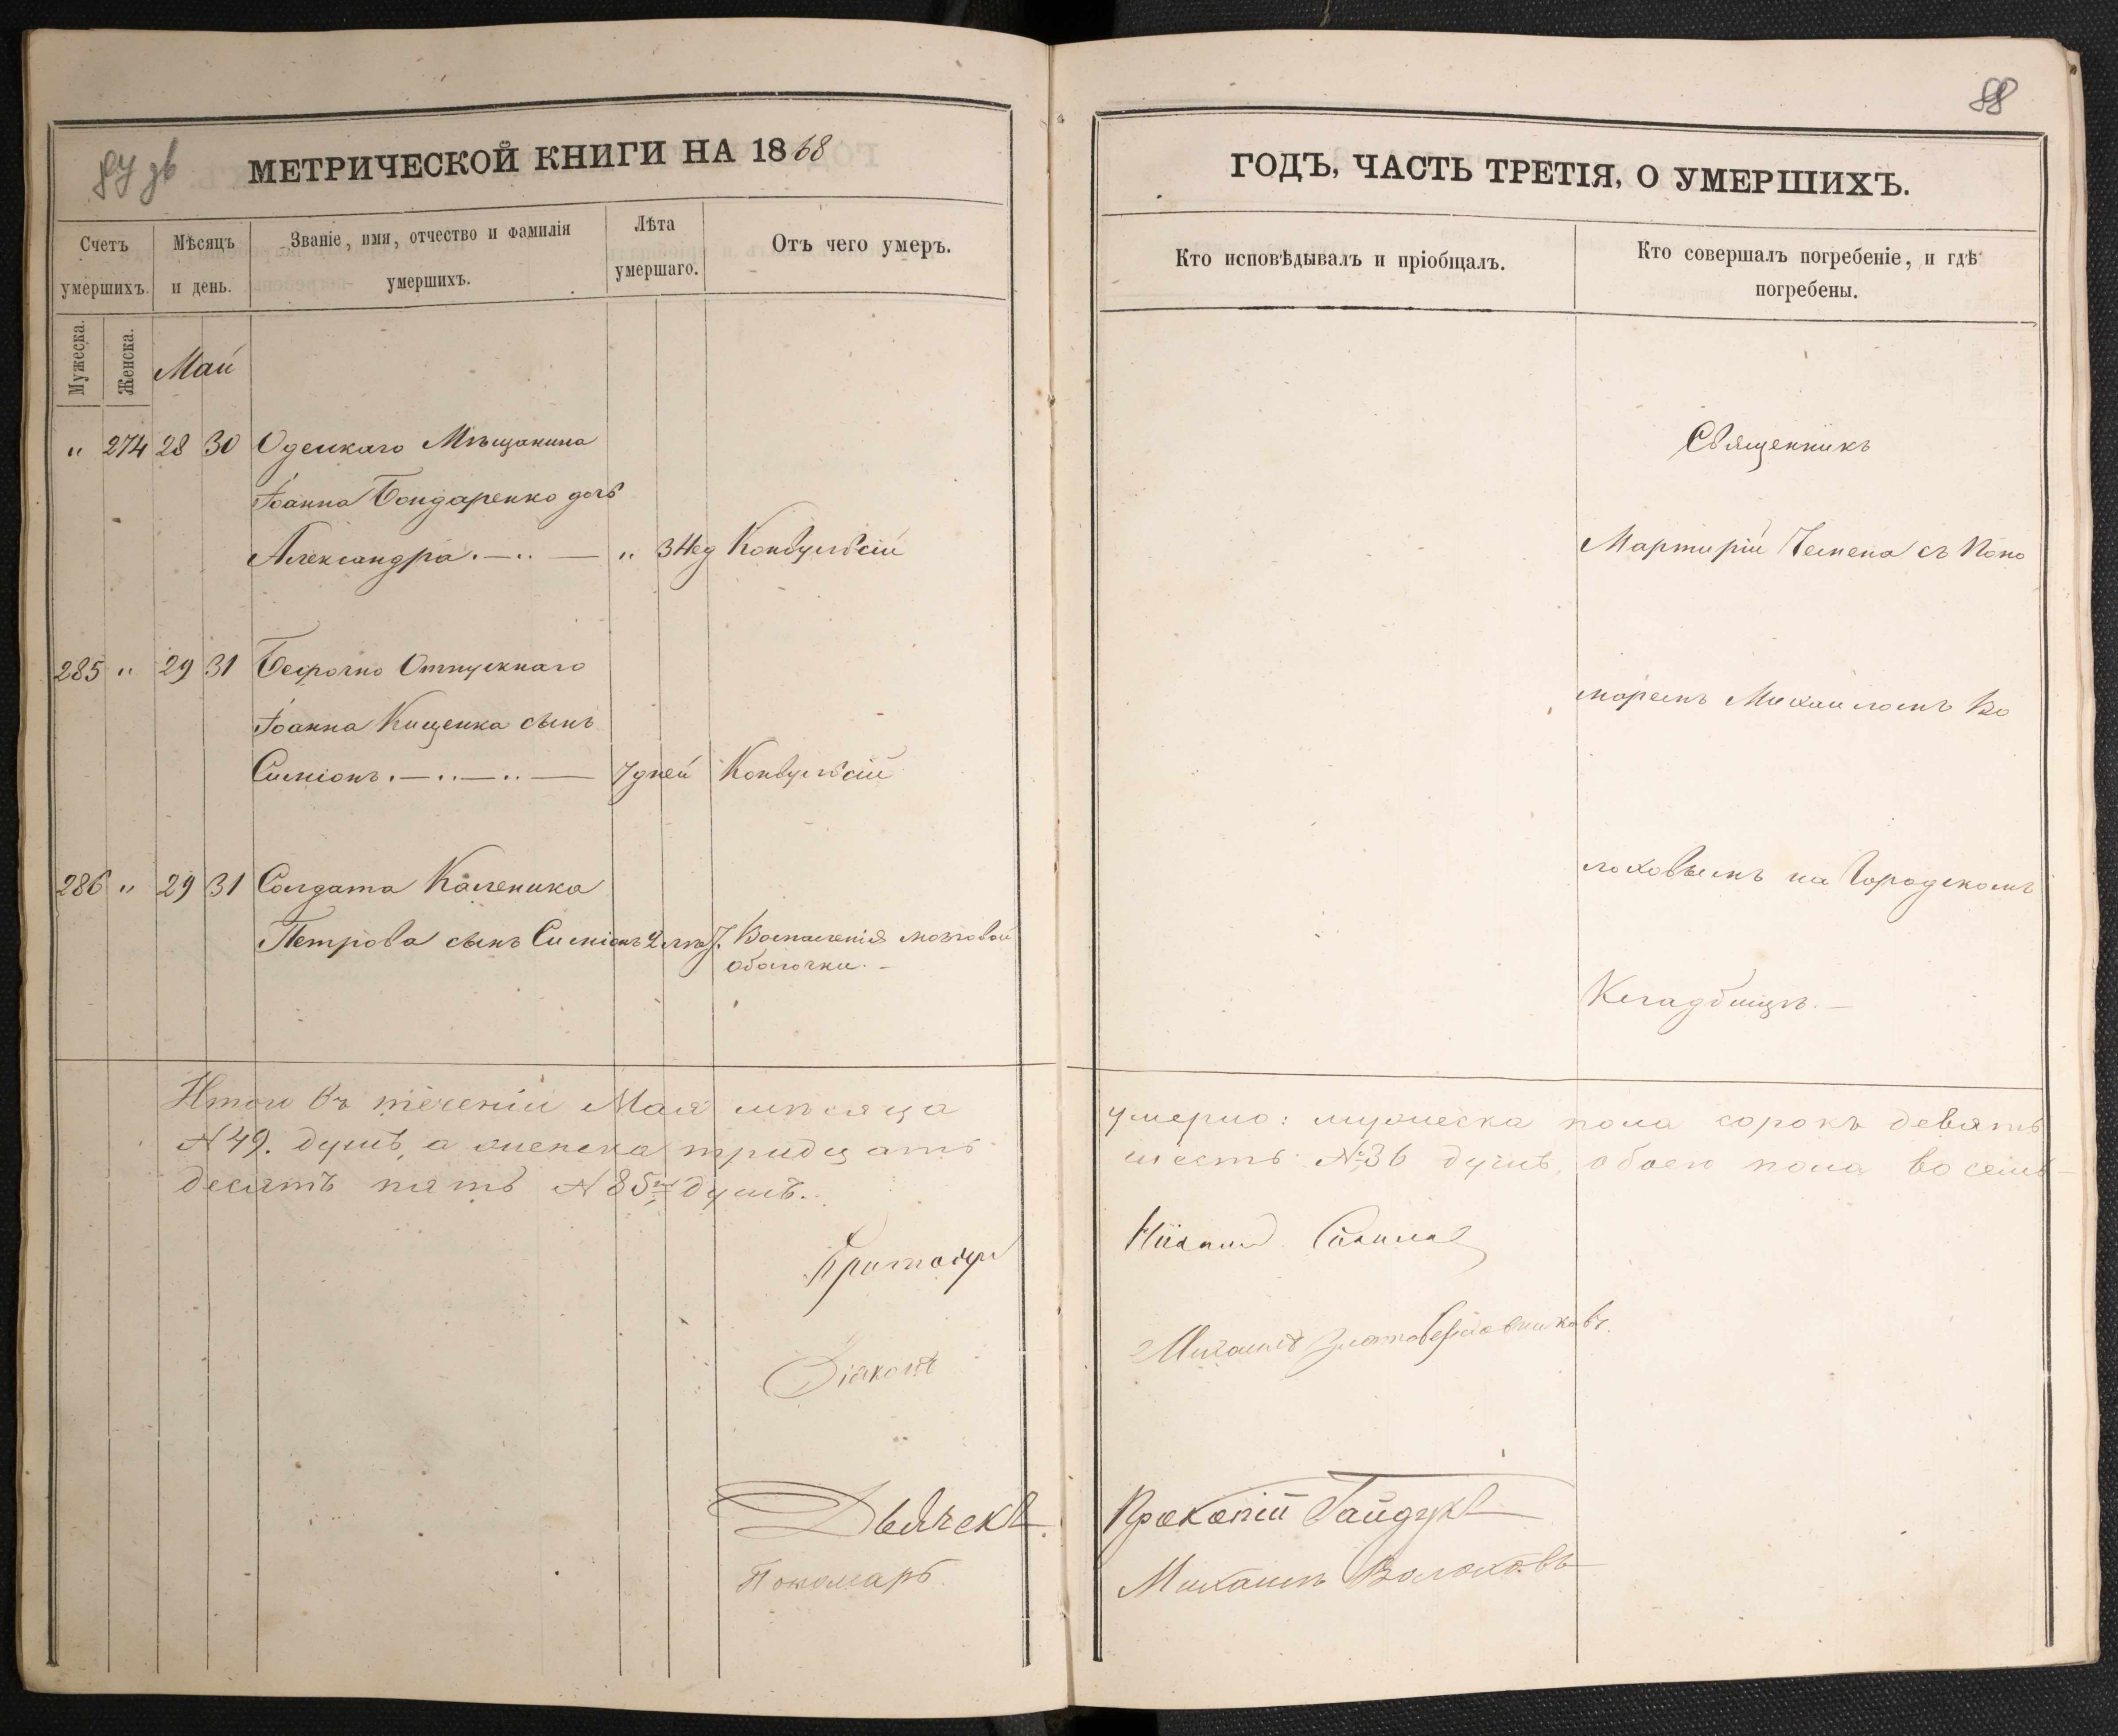 88
87 зв
МЕТРИЧЕСКОЙ КНИГИ НА 1868
ГОДЪ, ЧАСТЬ ТРЕТІЯ, О УМЕРШИХЪ.
Счетъ умершихъ.
Мѣсяцъ и день.
Званіе, имя, отчество и фамилія умершихъ.
Лѣта умершаго.
Отъ чего умеръ.
Кто исповѣдывалъ и пріобщалъ.
Кто совершалъ погребеніе, и гдѣ погребены.
Мужеска.
Женска.
Май
" 274 28 30 Одескаго Мѣщанина
Іоанна Бондаренко дочь
Александра.—..— " 3 Нед Конвульсій
285 " 29 31 Безсрочно Отпускнаго
Іоанна Кищенка сынъ
Симіонъ.—..—..— 7 дней Конвульсій
286 " 29 31 Солдата Каленика
Петрова сынъ Симіонъ 2 лѣтъ Воспаленія мозговой
оболочки.-
Священникъ
Мартирій Чемена съ Поно
маремъ Михаиломъ Во
лоховымъ на Городскомъ
Кладбищѣ.—
Итого въ теченіи Мая мѣсяца умерло: мужеска пола сорокъ девять
№ 49. душъ, а женска тридцать шесть №36 душъ, обоего пола восемь-
десятъ пять № 85ть душъ.
Діаконъ Михаилъ Златоверховниковъ.
Дьячекъ. Прокопій Гайдукъ
Пономарь. Михаилъ Волоховъ